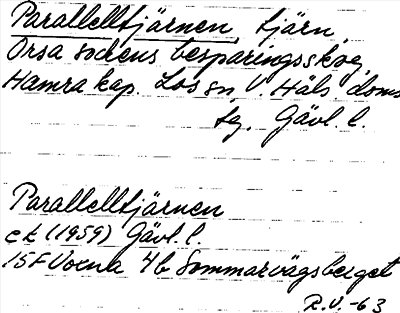 Parallelltjärnen, tjärn,
Orsa sockens besparingsskog,
Hamra kap. Los sn V. Häls. doms.
sg. Gävl. l.
Parallelltjärnen
ek (1959) Gävl. l.
15F Voxna 4b Sommarvägsberget
R.V. -63